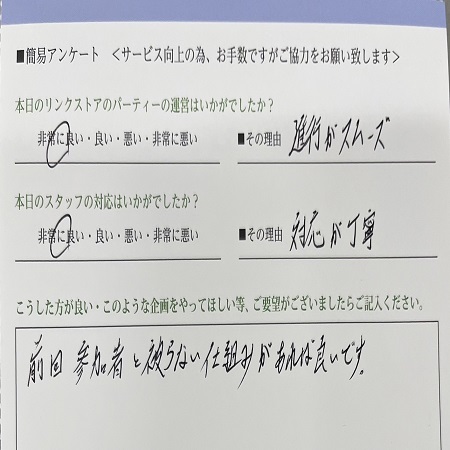 ■簡易アンケート ＜サービス向上の為、お手数ですがご協力をお願い致します＞
本日のリンクストアのパーティーの運営はいかがでしたか？
非常に良い・良い・悪い・非常に悪い ■その理由 進行がスムーズ
本日のスタッフの対応はいかがでしたか？
非常に良い・良い・悪い・非常に悪い ■その理由 対応が丁寧
こうした方が良い・このような企画をやってほしい等、ご要望がございましたらご記入ください。
前回参加者と被らない仕組みがあれば良いです。